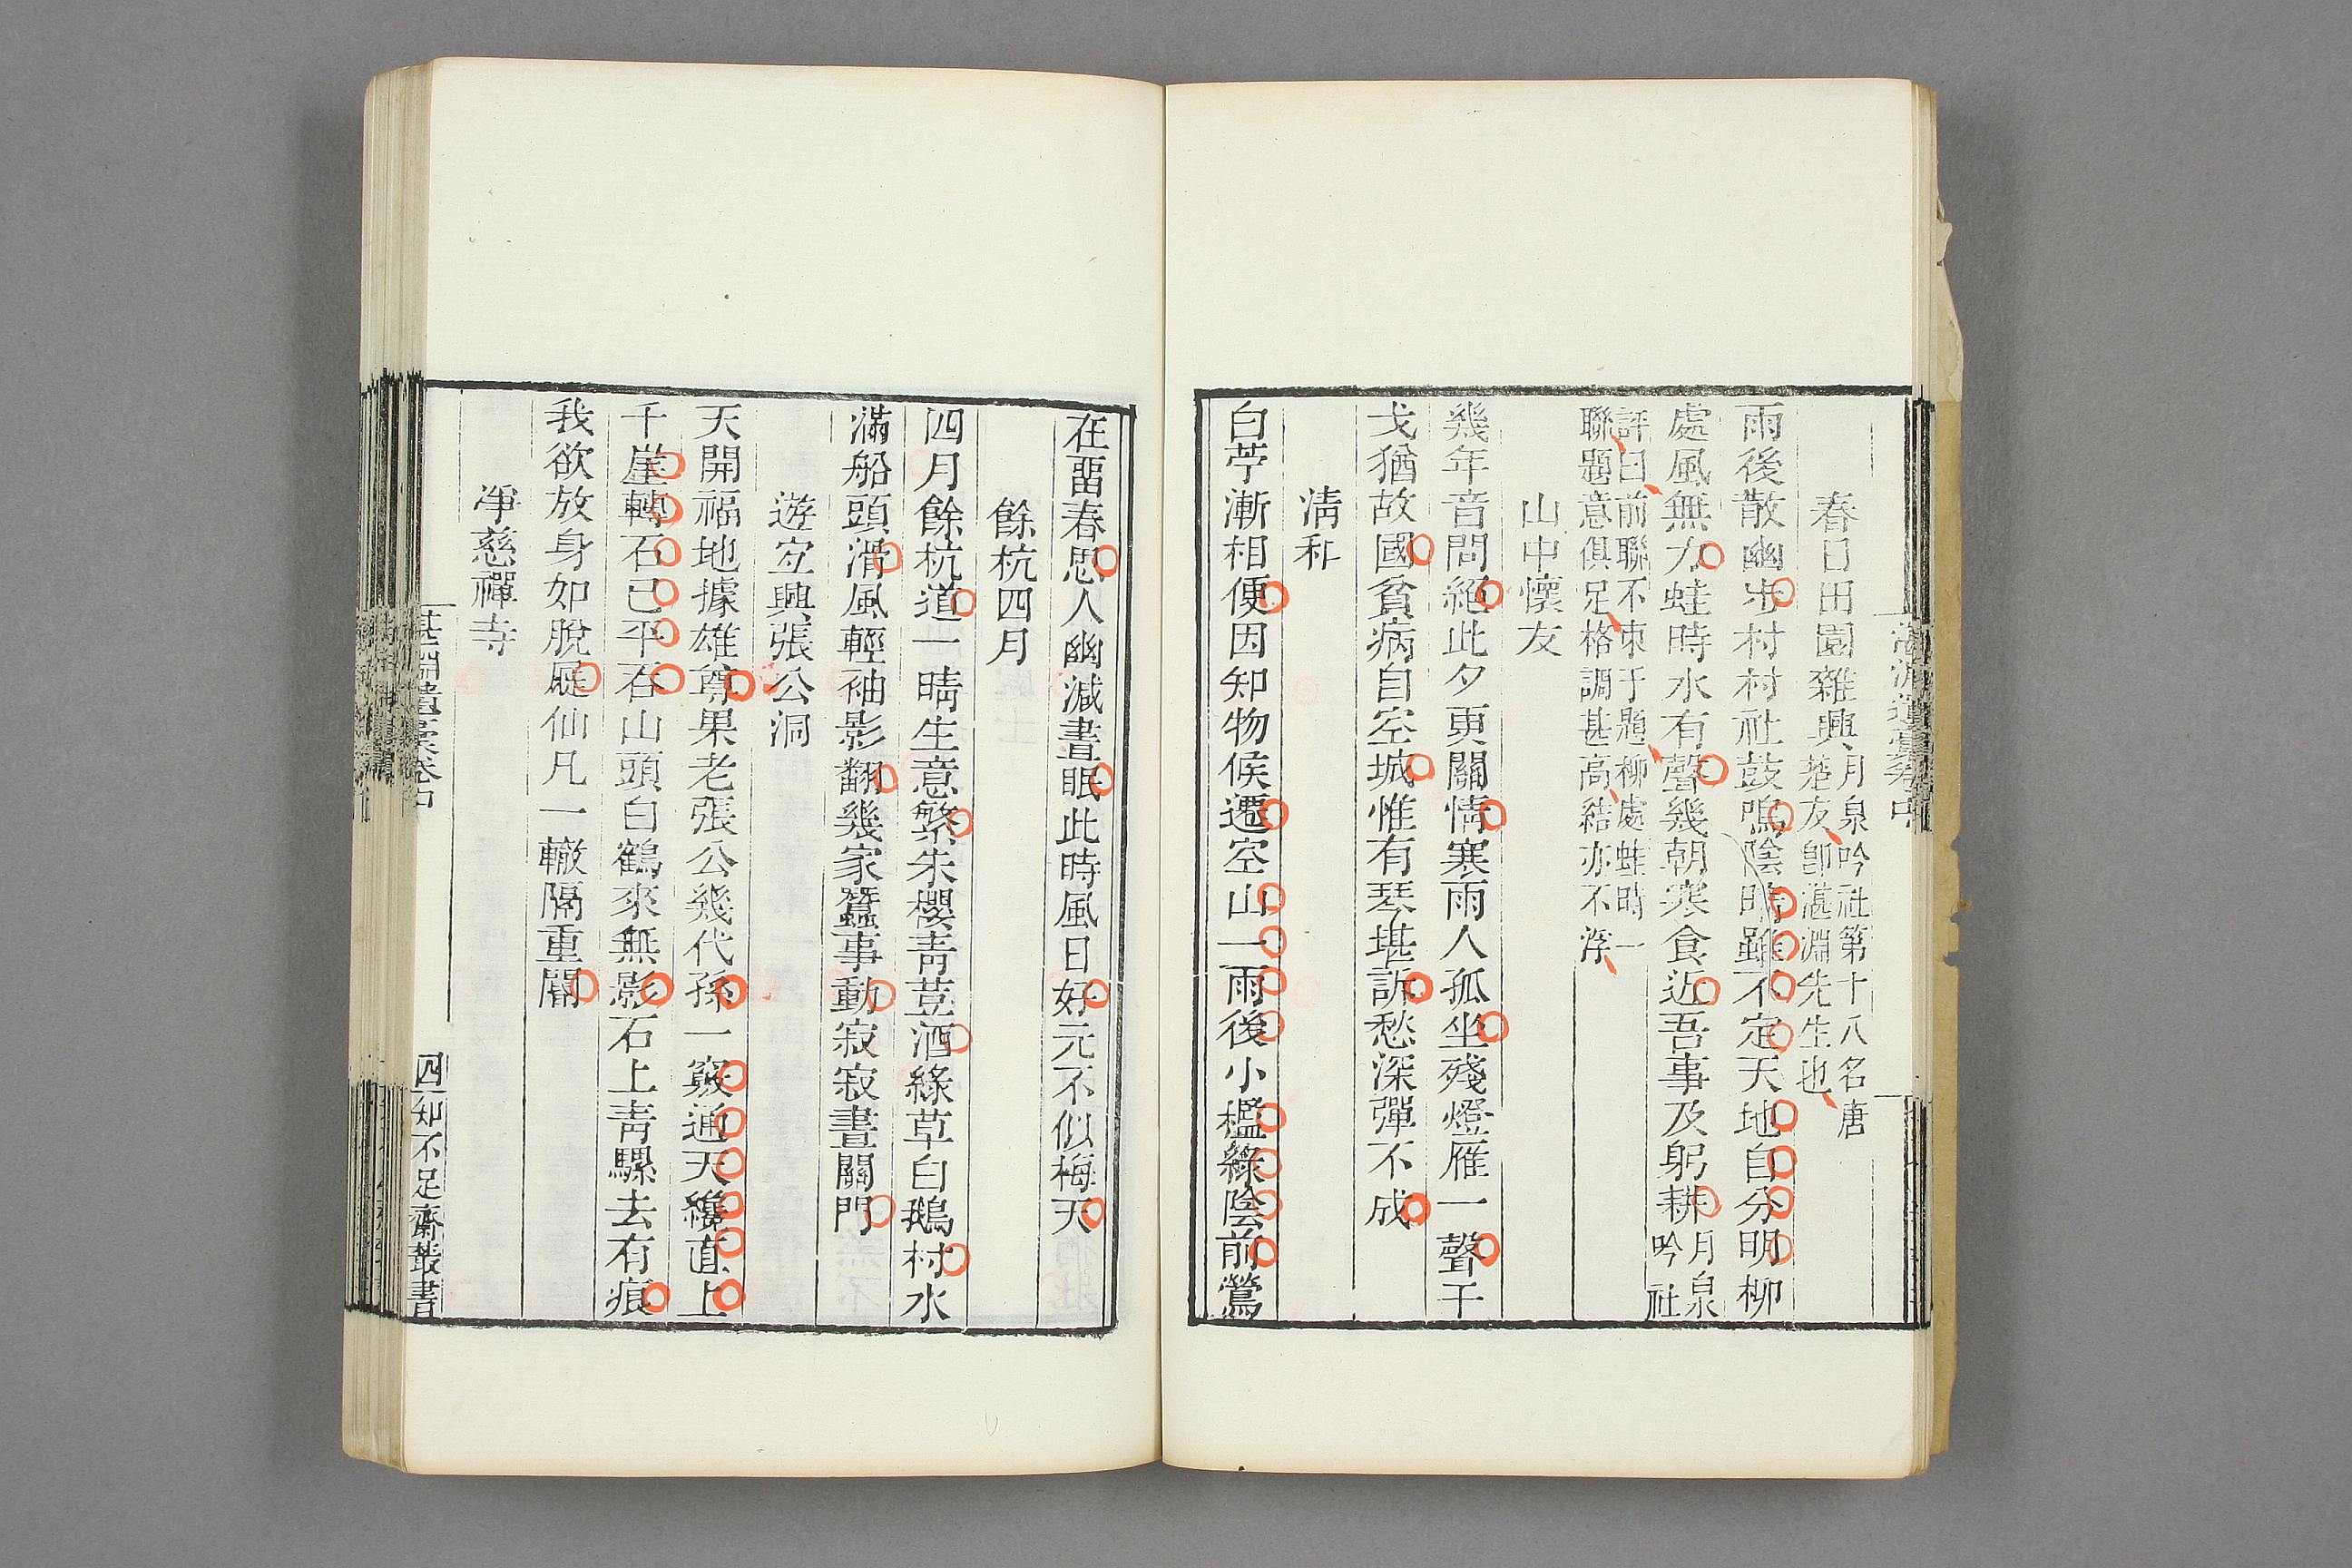 湛淵遺藁卷中
春日田園雜興月泉吟社第十八名唐
楚友卽湛淵先生也
雨後散幽步村村社鼓鳴陰晴雖不定天地自分明柳
處風無力蛙時水有聲幾朝寒食近吾事及躬耕月泉
吟社
評曰前聯不束于題柳處蛙時一
聯題意俱足格調甚高結亦不浮
山中懷友
幾年音問絕此夕更關情寒雨人孤坐殘燈雁一聲干
戈猶故國貧病自空城惟有琴堪訴愁深彈不成
淸和
白苧漸相便因知物候遷空山一雨後小檻綠陰前鶯
在畱春思人幽減晝眠此時風日好元不似梅天
餘杭四月
四月餘杭道一晴生意繁朱櫻靑荳酒綠草白鵝村水
滿船頭滑風輕袖影翻幾家蠶事動寂寂晝關門
遊宜興張公洞
天開福地據雄尊果老張公幾代孫一竅通天纔直上
千崖轉石已平吞山頭白鶴來無影石上靑騾去有痕
我欲放身如脫屣仙凡一轍隔重閽
淨慈禪寺
湛淵遺藁卷中
四
知不足齋叢書